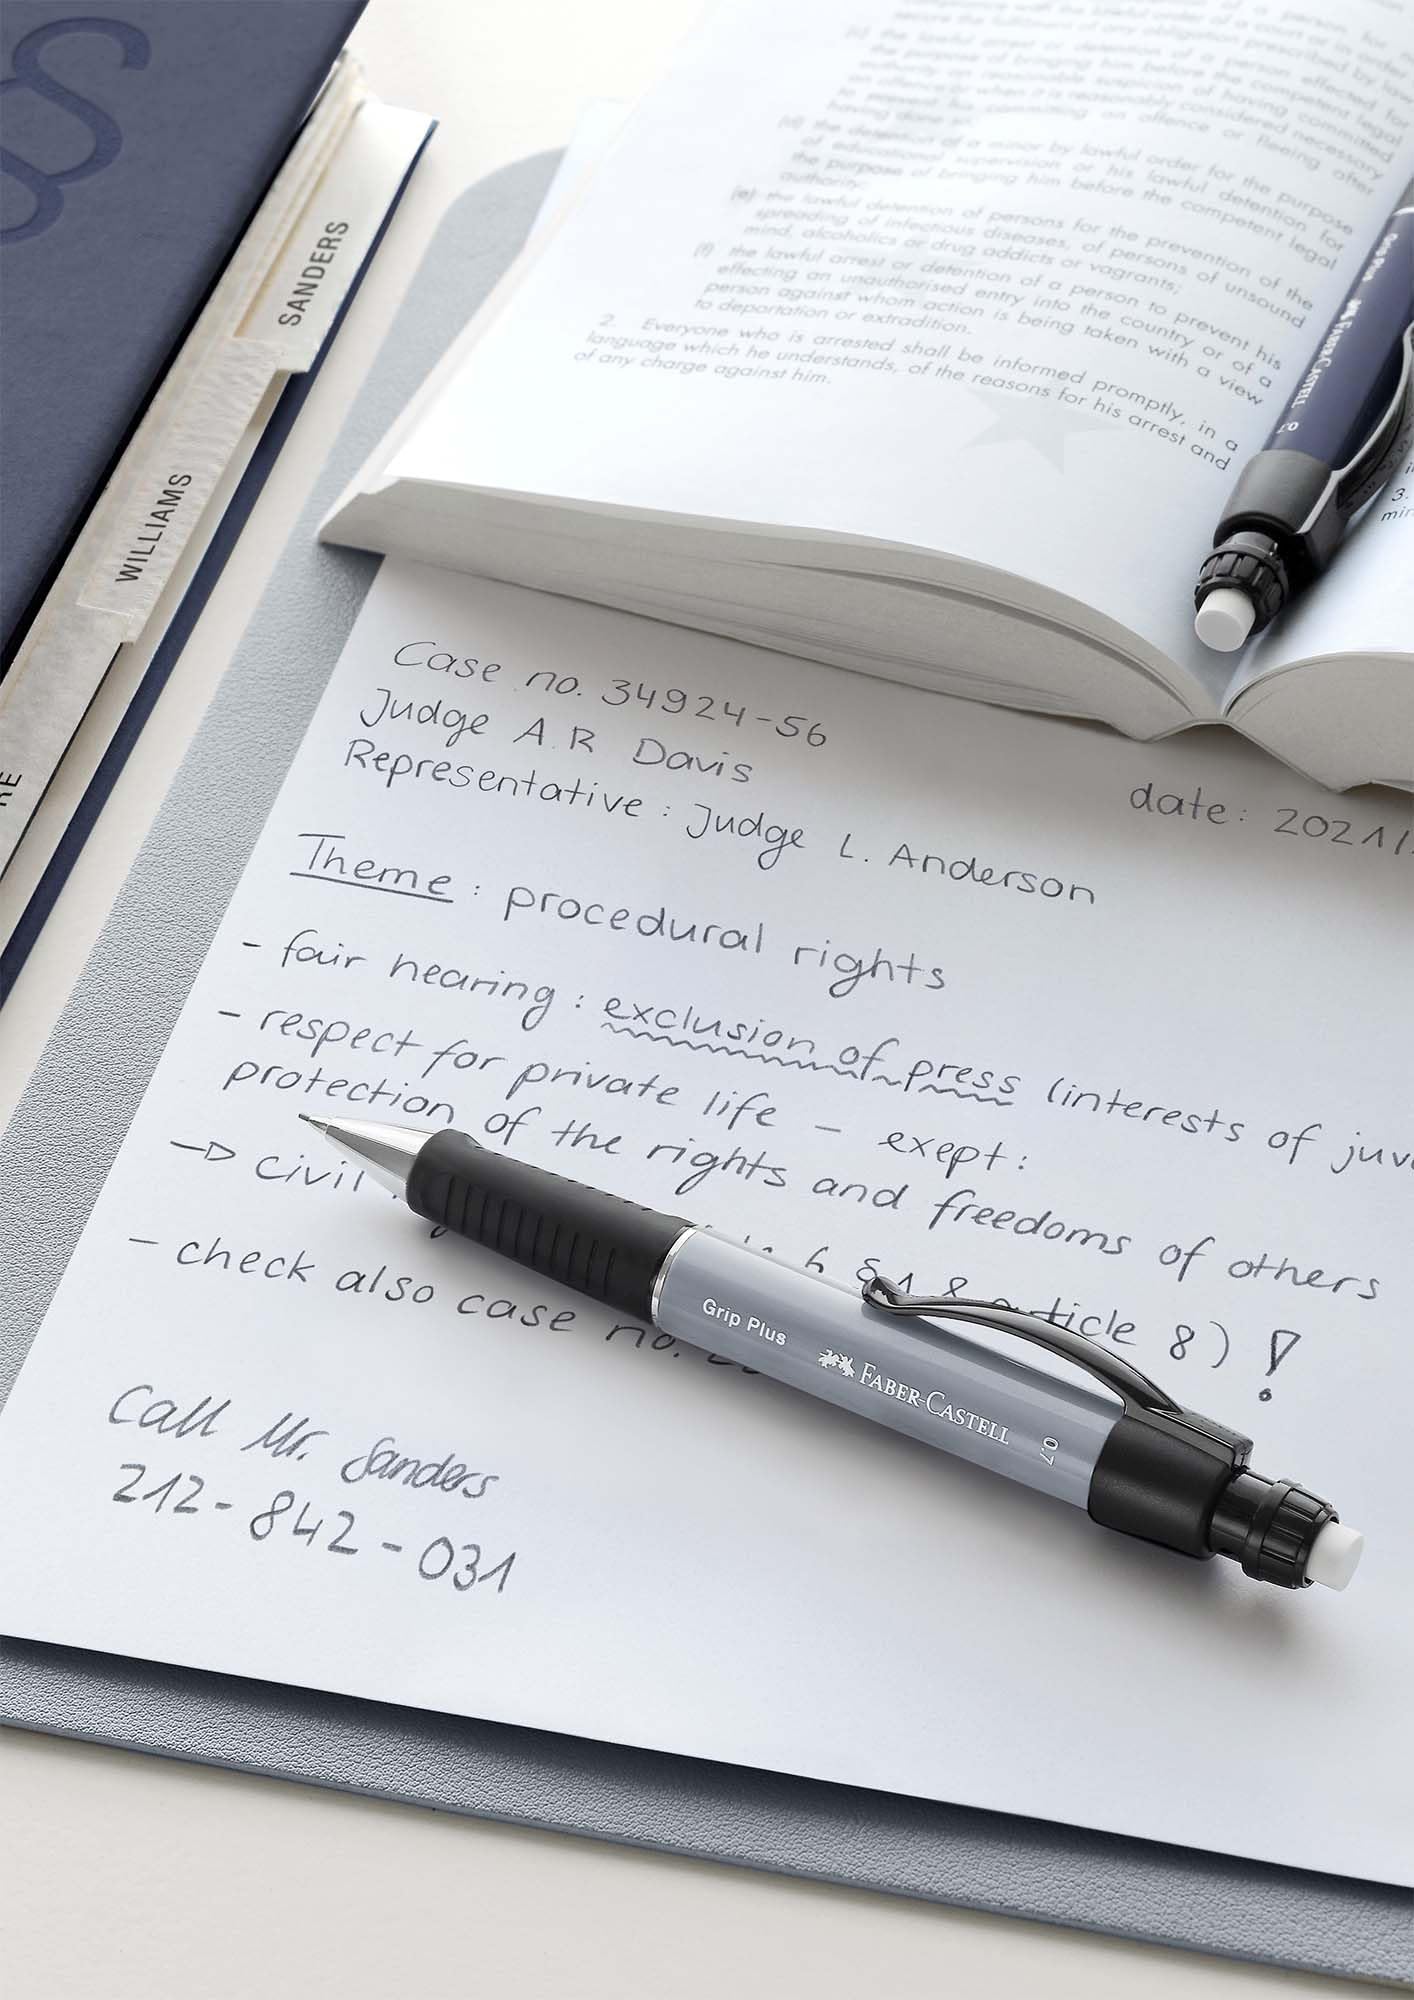 §
SANDERS
WILLIAMS
RE
secure the fulfilment of any obligation prescribed by law
(c) the lawful arrest or detention of a person effected for
the purpose of bringing him before the competent legal
authority on reasonable suspicion of having committed
an offence or when it is reasonably considered necessary
to prevent his committing an offence or fleeing after
having done so;
(d) the detention of a minor by lawful order for the purpose
of educational supervision or his lawful detention for
the purpose of bringing him before the competent legal
authority;
(e) the lawful detention of persons for the prevention of the
spreading of infectious diseases, of persons of unsound
mind, alcoholics or drug addicts or vagrants;
(f) the lawful arrest or detention of a person to prevent his
effecting an unauthorised entry into the country or of a
person against whom action is being taken with a view
to deportation or extradition.
2. Everyone who is arrested shall be informed promptly, in a
language which he understands, of the reasons for his arrest and
of any charge against him.
3.
Grip Plus FABER-CASTELL 0.7
Case no. 34924-56
Judge A.R Davis
Representative : Judge L. Anderson
date: 2021/
Theme : procedural rights
- fair hearing : exclusion of press (interests of
- respect for private life - exept:
protection of the rights and freedoms of others
civil 6 §1 & article 8) !
- check also case no.
Call Mr. Sanders
212-842-031
Grip Plus FABER-CASTELL 0.7